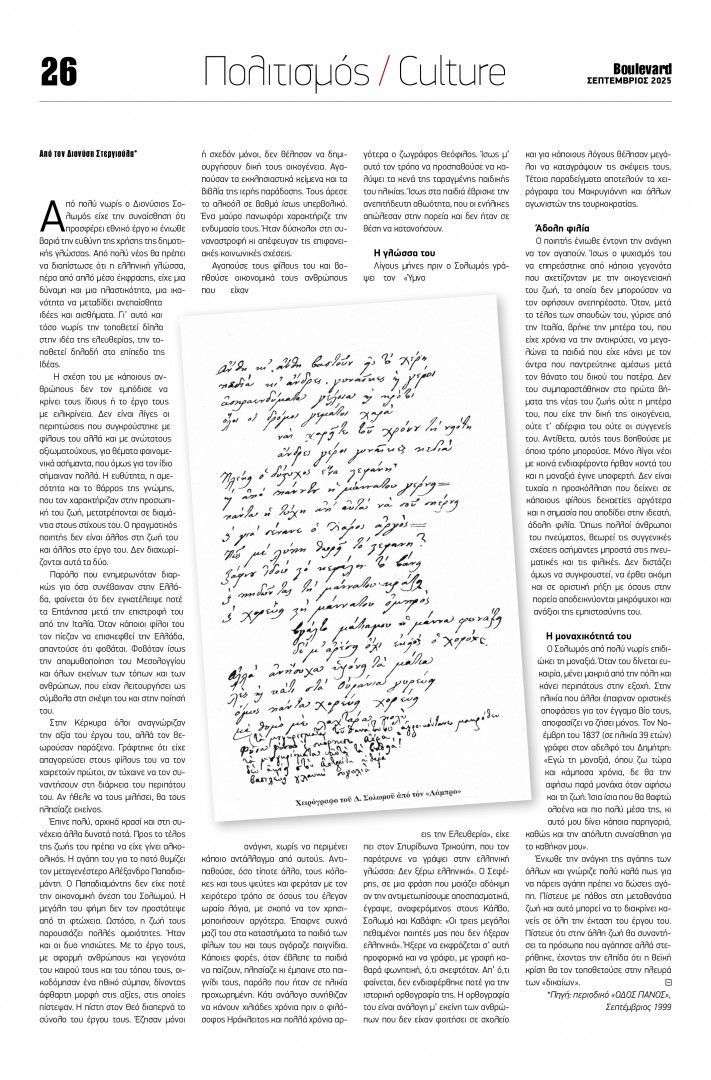 26
Πολιτισμός / Culture
Boulevard
ΣΕΠΤΕΜΒΡΙΟΣ 2025
Από τον Διονύση Στεργιούλα*
Από πολύ νωρίς ο Διονύσιος Σο-
λωμός είχε την συναίσθηση ότι
προσφέρει εθνικό έργο κι ένιωθε
βαριά την ευθύνη της χρήσης της δημοτι-
κής γλώσσας. Από πολύ νέος θα πρέπει
να διαπίστωσε ότι η ελληνική γλώσσα,
πέρα από απλό μέσο έκφρασης, είχε μια
δύναμη και μια πλαστικότητα, μια ικα-
νότητα να μεταδίδει ανεπαίσθητα
ιδέες και αισθήματα. Γι’ αυτό και
τόσο νωρίς την τοποθετεί δίπλα
στην ιδέα της ελευθερίας, την το-
ποθετεί δηλαδή στο επίπεδο της
Ιδέας.
Η σχέση του με κάποιους αν-
θρώπους δεν τον εμπόδισε να
κρίνει τους ίδιους ή το έργο τους
με ειλικρίνεια. Δεν είναι λίγες οι
περιπτώσεις που συγκρούστηκε με
φίλους του αλλά και με ανώτατους
αξιωματούχους, για θέματα φαινομε-
νικά ασήμαντα, που όμως για τον ίδιο
σήμαιναν πολλά. Η ευθύτητα, η αμε-
σότητα και το θάρρος της γνώμης,
που τον χαρακτήριζαν στην προσωπι-
κή του ζωή, μετατρέπονται σε διαμά-
ντια στους στίχους του. Ο πραγματικός
ποιητής δεν είναι άλλος στη ζωή του
και άλλος στο έργο του. Δεν διαχωρί-
ζονται αυτά τα δύο.
Παρόλο που ενημερωνόταν διαρ-
κώς για όσα συνέβαιναν στην Ελλά-
δα, φαίνεται ότι δεν εγκατέλειψε ποτέ
τα Επτάνησα μετά την επιστροφή του
από την Ιταλία. Όταν κάποιοι φίλοι του
τον πίεζαν να επισκεφθεί την Ελλάδα,
απαντούσε ότι φοβάται. Φοβόταν ίσως
την απομυθοποίηση του Μεσολογγίου
και όλων εκείνων των τόπων και των
ανθρώπων, που είχαν λειτουργήσει ως
σύμβολα στη σκέψη του και στην ποίησή
του.
Στην Κέρκυρα όλοι αναγνώριζαν
την αξία του έργου του, αλλά τον θε-
ωρούσαν παράξενο. Γράφτηκε ότι είχε
απαγορεύσει στους φίλους του να τον
χαιρετούν πρώτοι, αν τύχαινε να τον συ-
ναντήσουν στη διάρκεια του περιπάτου
του. Αν ήθελε να τους μιλήσει, θα τους
πλησίαζε εκείνος.
Έπινε πολύ, αρχικά κρασί και στη συ-
νέχεια άλλα δυνατά ποτά. Προς το τέλος
της ζωής του πρέπει να είχε γίνει αλκο-
ολικός. Η αγάπη του για το ποτό θυμίζει
τον μεταγενέστερο Αλέξανδρο Παπαδια-
μάντη. Ο Παπαδιαμάντης δεν είχε ποτέ
την οικονομική άνεση του Σολωμού. Η
μεγάλη του φήμη δεν τον προστάτεψε
από τη φτώχεια. Ωστόσο, η ζωή τους
παρουσιάζει πολλές ομοιότητες. Ήταν
και οι δυο νησιώτες. Με το έργο τους,
με αφορμή ανθρώπους και γεγονότα
του καιρού τους και του τόπου τους, οι-
κοδόμησαν ένα ηθικό σύμπαν, δίνοντας
άφθαρτη μορφή στις αξίες, στις οποίες
πίστεψαν. Η πίστη στον Θεό διαπερνά το
σύνολο του έργου τους. Έζησαν μόνοι
ή σχεδόν μόνοι, δεν θέλησαν να δημι-
ουργήσουν δική τους οικογένεια. Αγα-
πούσαν τα εκκλησιαστικά κείμενα και τα
βιβλία της ιερής παράδοσης. Τους άρεσε
το αλκοόλ σε βαθμό ίσως υπερβολικό.
Ένα μαύρο πανωφόρι χαρακτήριζε την
ενδυμασία τους. Ήταν δύσκολοι στη συ-
ναναστροφή κι απέφευγαν τις επιφανει-
ακές κοινωνικές σχέσεις.
Αγαπούσε τους φίλους του και βο-
ηθούσε οικονομικά τους ανθρώπους
που είχαν
ανάγκη, χωρίς να περιμένει
κάποιο αντάλλαγμα από αυτούς. Αντι-
παθούσε, όσο τίποτε άλλο, τους κόλα-
κες και τους ψεύτες και φερόταν με τον
χειρότερο τρόπο σε όσους του έλεγαν
ωραία λόγια, με σκοπό να τον χρησι-
μοποιήσουν αργότερα. Έπαιρνε συχνά
μαζί του στα καταστήματα τα παιδιά των
φίλων του και τους αγόραζε παιγνίδια.
Κάποιες φορές, όταν έβλεπε τα παιδιά
να παίζουν, πλησίαζε κι έμπαινε στο παι-
γνίδι τους, παρόλο που ήταν σε ηλικία
προχωρημένη. Κάτι ανάλογο συνήθιζαν
να κάνουν χιλιάδες χρόνια πριν ο φιλό-
σοφος Ηράκλειτος και πολλά χρόνια αρ-
γότερα ο ζωγράφος Θεόφιλος. Ίσως μ’
αυτό τον τρόπο να προσπαθούσε να κα-
λύψει τα κενά της ταραγμένης παιδικής
του ηλικίας. Ίσως στα παιδιά έβρισκε την
ανεπιτήδευτη αθωότητα, που οι ενήλικες
απώλεσαν στην πορεία και δεν ήταν σε
θέση να κατανοήσουν.
Η γλώσσα του
Λίγους μήνες πριν ο Σολωμός γρά-
ψει τον «Ύμνο
Χειρόγραφο τοῦ Δ. Σολωμοῦ ἀπὸ τὸν «Λάμπρο»
εις την Ελευθερία», είχε
πει στον Σπυρίδωνα Τρικούπη, που τον
παρότρυνε να γράψει στην ελληνική
γλώσσα: Δεν ξέρω ελληνικά». Ο Σεφέ-
ρης, σε μια φράση που μοιάζει αδόκιμη
αν την αντιμετωπίσουμε αποσπασματικά,
έγραψε, αναφερόμενος στους Κάλβο,
Σολωμό και Καβάφη: «Οι τρεις μεγάλοι
πεθαμένοι ποιητές μας που δεν ήξεραν
ελληνικά». Ήξερε να εκφράζεται σ’ αυτή
προφορικά και να γράφει, με γραφή κα-
θαρά φωνητική, ό,τι σκεφτόταν. Απ’ ό,τι
φαίνεται, δεν ενδιαφέρθηκε ποτέ για την
ιστορική ορθογραφία της. Η ορθογραφία
του είναι ανάλογη μ’ εκείνη των ανθρώ-
πων που δεν είχαν φοιτήσει σε σχολείο
και για κάποιους λόγους θέλησαν μεγά-
λοι να καταγράψουν τις σκέψεις τους.
Τέτοια παραδείγματα αποτελούν τα χει-
ρόγραφα του Μακρυγιάννη και άλλων
αγωνιστών της τουρκοκρατίας.
Άδολη φιλία
Ο ποιητής ένιωθε έντονη την ανάγκη
να τον αγαπούν. Ίσως ο ψυχισμός του
να επηρεάστηκε από κάποια γεγονότα
που σχετίζονταν με την οικογενειακή
του ζωή, τα οποία δεν μπορούσαν να
τον αφήσουν ανεπηρέαστο. Όταν, μετά
το τέλος των σπουδών του, γύρισε από
την Ιταλία, βρήκε την μητέρα του, που
είχε χρόνια να την αντικρύσει, να μεγα-
λώνει τα παιδιά που είχε κάνει με τον
άντρα που παντρεύτηκε αμέσως μετά
τον θάνατο του δικού του πατέρα. Δεν
του συμπαραστάθηκαν στα πρώτα βή-
ματα της νέας του ζωής ούτε η μητέρα
του, που είχε την δική της οικογένεια,
ούτε τ’ αδέρφια του ούτε οι συγγενείς
του. Αντίθετα, αυτός τους βοηθούσε με
όποιο τρόπο μπορούσε. Μόνο λίγοι νέοι
με κοινά ενδιαφέροντα ήρθαν κοντά του
και η μοναξιά έγινε υποφερτή. Δεν είναι
τυχαία η προσκόλληση που δείχνει σε
κάποιους φίλους δεκαετίες αργότερα
και η σημασία που αποδίδει στην ιδεατή,
άδολη φιλία. Όπως πολλοί άνθρωποι
του πνεύματος, θεωρεί τις συγγενικές
σχέσεις ασήμαντες μπροστά στις πνευ-
ματικές και τις φιλικές. Δεν διστάζει
όμως να συγκρουστεί, να έρθει ακόμη
και σε οριστική ρήξη με όσους στην
πορεία αποδεικνύονται μικρόψυχοι και
ανάξιοι της εμπιστοσύνης του.
Η μοναχικότητά του
Ο Σολωμός από πολύ νωρίς επιδι-
ώκει τη μοναξιά. Όταν του δίνεται ευκαι-
ρία, μένει μακριά από την πόλη και
κάνει περιπάτους στην εξοχή. Στην
ηλικία που άλλοι έπαιρναν οριστικές
αποφάσεις για τον έγγαμο βίο τους,
αποφασίζει να ζήσει μόνος. Τον Νο-
έμβρη του 1837 (σε ηλικία 39 ετών)
γράφει στον αδελφό του Δημήτρη:
«Εγώ τη μοναξιά, όπου ζω τώρα
και κάμποσα χρόνια, δε θα την
αφήσω παρά μονάχα όταν αφήσω
και τη ζωή. Ίσια ίσια που θα θαφτώ
ολοένα και πιο πολύ μέσα της, κι
αυτό μου δίνει κάποια παρηγοριά,
καθώς και την απόλυτη συναίσθηση για
το καθήκον μου».
Ένιωθε την ανάγκη της αγάπης των
άλλων και γνώριζε πολύ καλά πως για
να πάρεις αγάπη πρέπει να δώσεις αγά-
πη. Πίστευε με πάθος στη μεταθανάτια
ζωή και αυτό μπορεί να το διακρίνει κα-
νείς σε όλη την έκταση του έργου του.
Πίστευε ότι στην άλλη ζωή θα συναντή-
σει τα πρόσωπα που αγάπησε αλλά στε-
ρήθηκε, έχοντας την ελπίδα ότι η θεϊκή
κρίση θα τον τοποθετούσε στην πλευρά
των «δικαίων».
*Πηγή: περιοδικό «ΟΔΟΣ ΠΑΝΟΣ»,
Σεπτέμβριος 1999